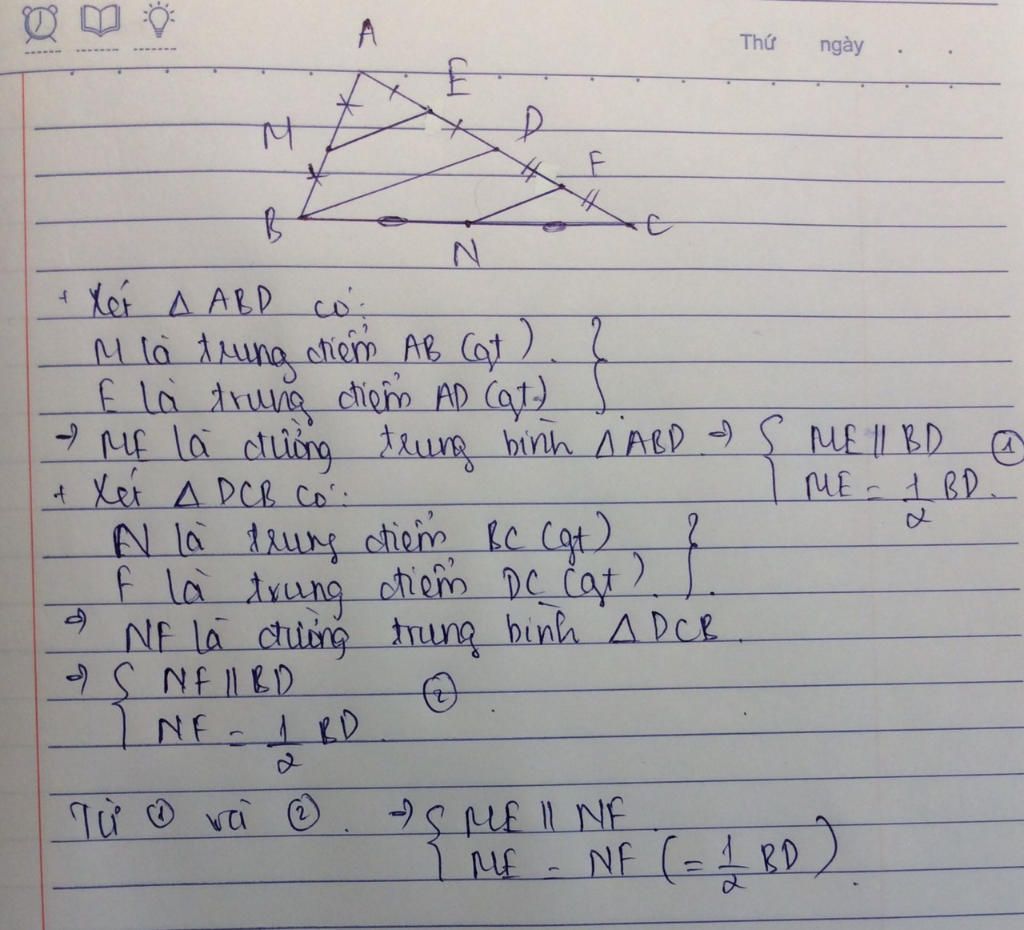 Thứ ngày . .
A
E
M
D
F
B
N
C
+ Xét △ ABD có:
M là trung điểm AB (gt). }
E là trung điểm AD (gt)
→ ME là đường trung bình △ABD → { ME // BD ①
ME = 1/2 BD.
+ Xét △ DCB có:
N là trung điểm BC (gt) }
F là trung điểm DC (gt).
→ NF là đường trung bình △ DCB.
→ { NF // BD ②
NF = 1/2 BD
Từ ① và ②. → { ME // NF
ME = NF (= 1/2 BD).